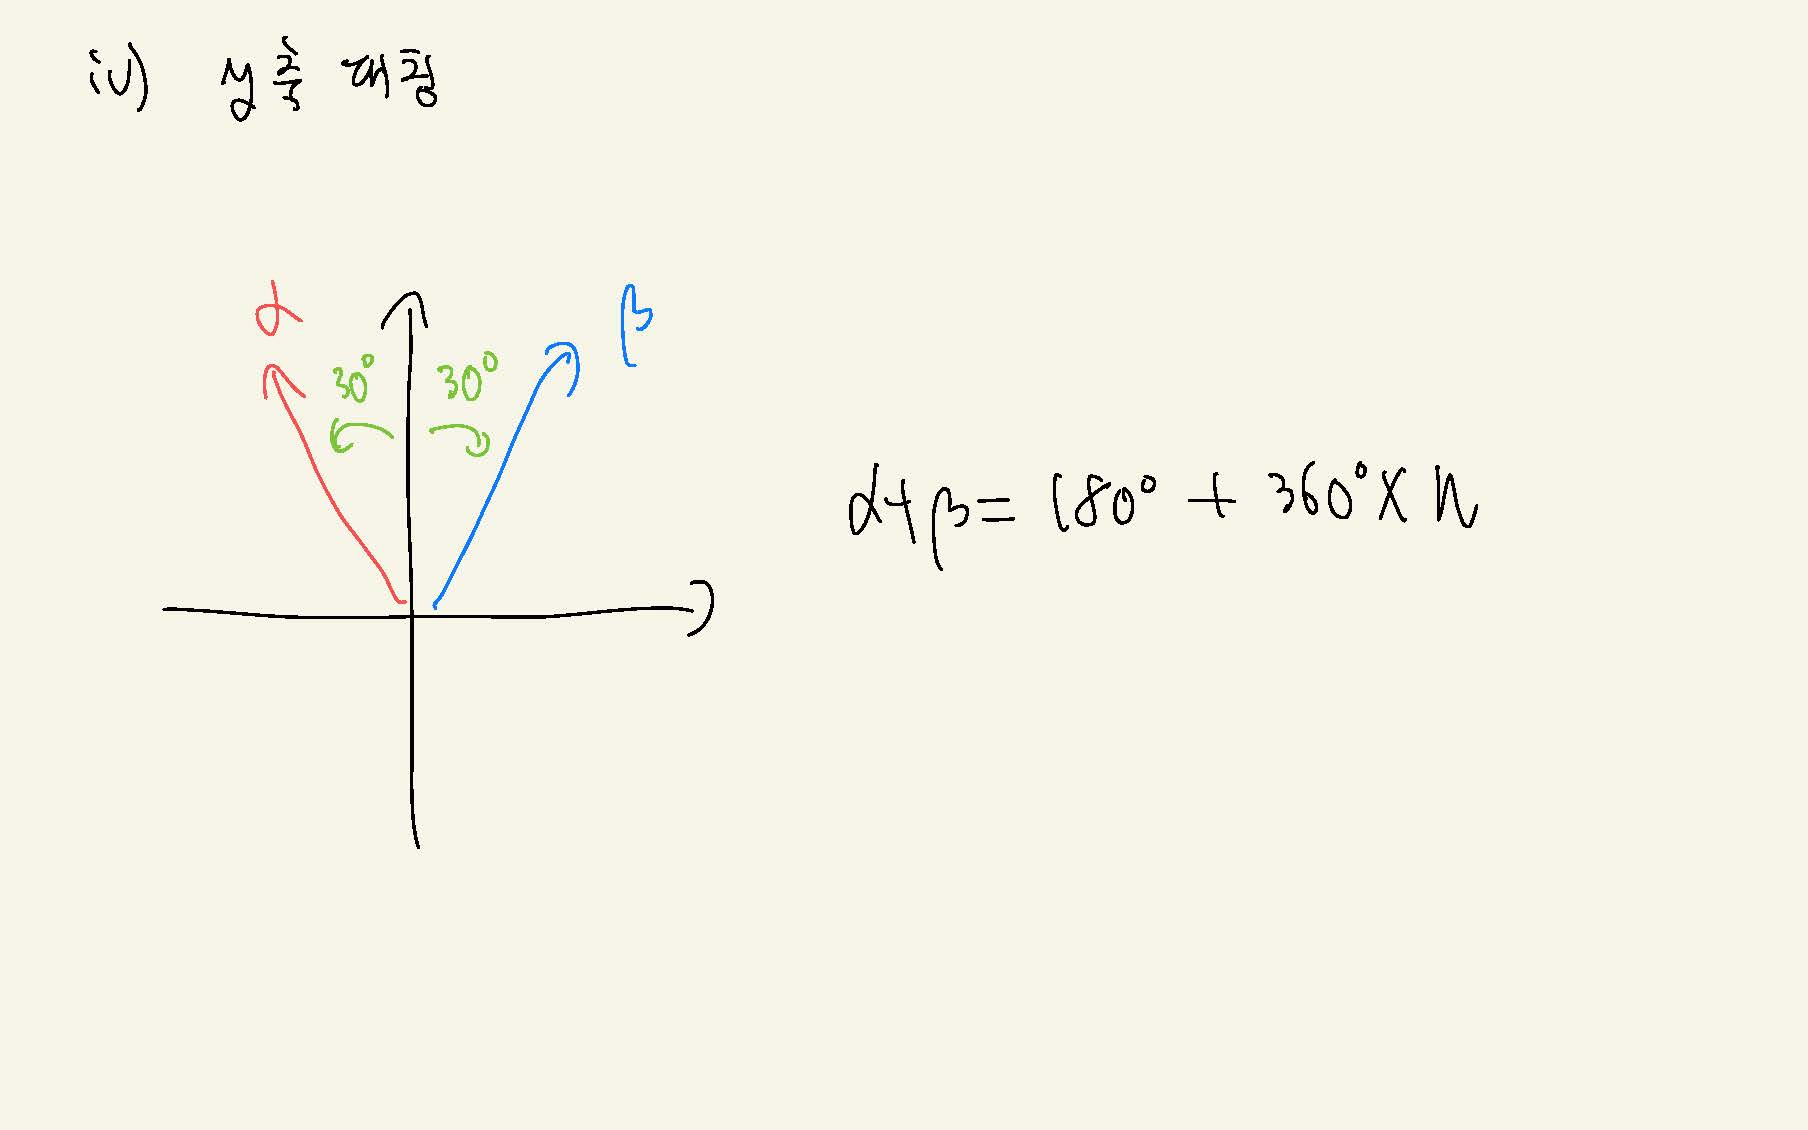 iv) y축 대칭
α β
30° 30°
α+β = 180° + 360° × n